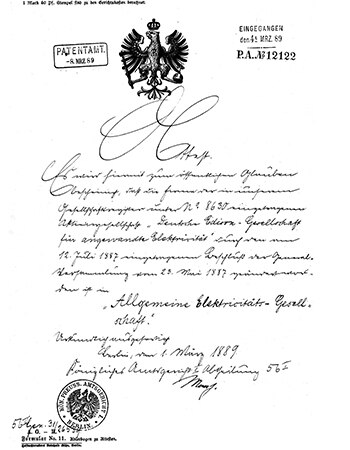 1 Mark 50 Pf. Stempel sind zu den Gerichtskosten berechnet.
PATENTAMT.
-8. MRZ. 89
EINGEGANGEN
den MRZ. 89
P.A. № 12122
Attest.
Es wird hiermit zum öffentlichen Glauben
bescheinigt, daß die Firma der in unserem
Gesellschaftsregister unter No. 8630 eingetragenen
Aktiengesellschaft „Deutsche Edison-Gesellschaft
für angewandte Elektricität" durch den am
12. Juli 1887 eingetragenen Beschluß der General-
Versammlung vom 23. Mai 1887 geändert wor-
den ist in
„Allgemeine Elektricitäts-Gesell-
schaft."
Urkundlich ausgefertigt
Berlin, den 1. März 1889
Königliches Amtsgericht I. Abtheilung 56 I
KÖN. PREUSS. AMTSGERICHT I.
BERLIN
Formular No. 11.